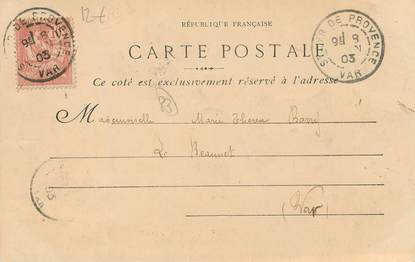 12€
RÉPUBLIQUE FRANÇAISE
CARTE POSTALE
Ce coté est exclusivement réservé à l'adresse
DE PROVENCE
8
03
VAR
DE PROVENCE
8
03
VAR
Mademoiselle Marie Thérèse Barry
Le Beausset
(Var)